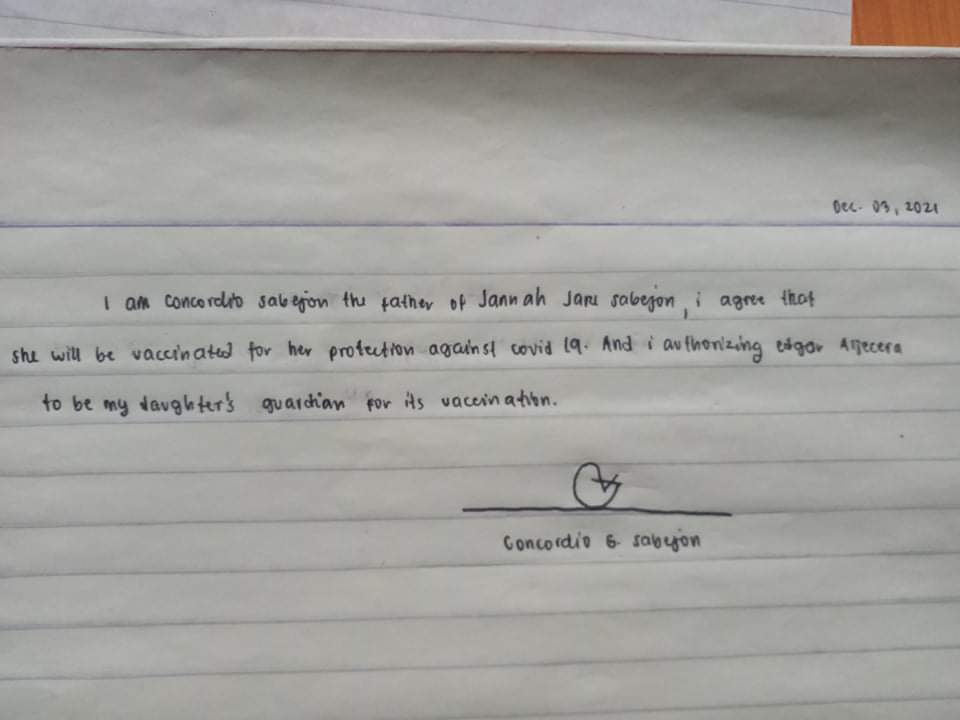 Dec. 03, 2021
I am Concordito sabejon the father of Jannah Jane sabejon, i agree that
she will be vaccinated for her protection against covid 19. And i authorizing edgar
to be my daughter's guardian for its vaccination.
Concordio G. sabejon